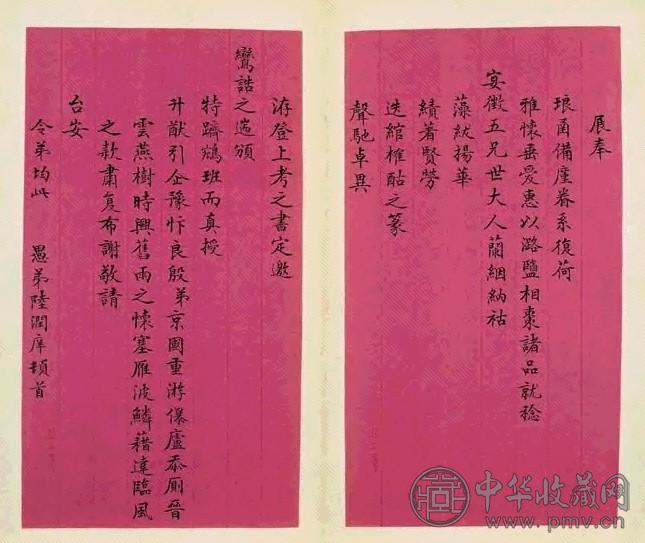 展奉
琅函備廑眷系復荷
雅懷垂愛惠以潞鹽相棗諸品就稔
徵五兄世大人蘭絪納祜
藻揚華
績著賢勞
迭綰榷酤之篆
聲馳卓異
洊登上考之書定邀
鸞誥之遄頒
特躋鵷班而真授
升猷引企豫忭良殷弟京國重游儤廬忝廁晉
雲燕樹時興舊雨之懷塞雁波鱗藉達臨風
之款肅复布謝敬請
台安
令弟均此 愚弟陸潤庠頓首
中华收藏网
www.pmv.cn